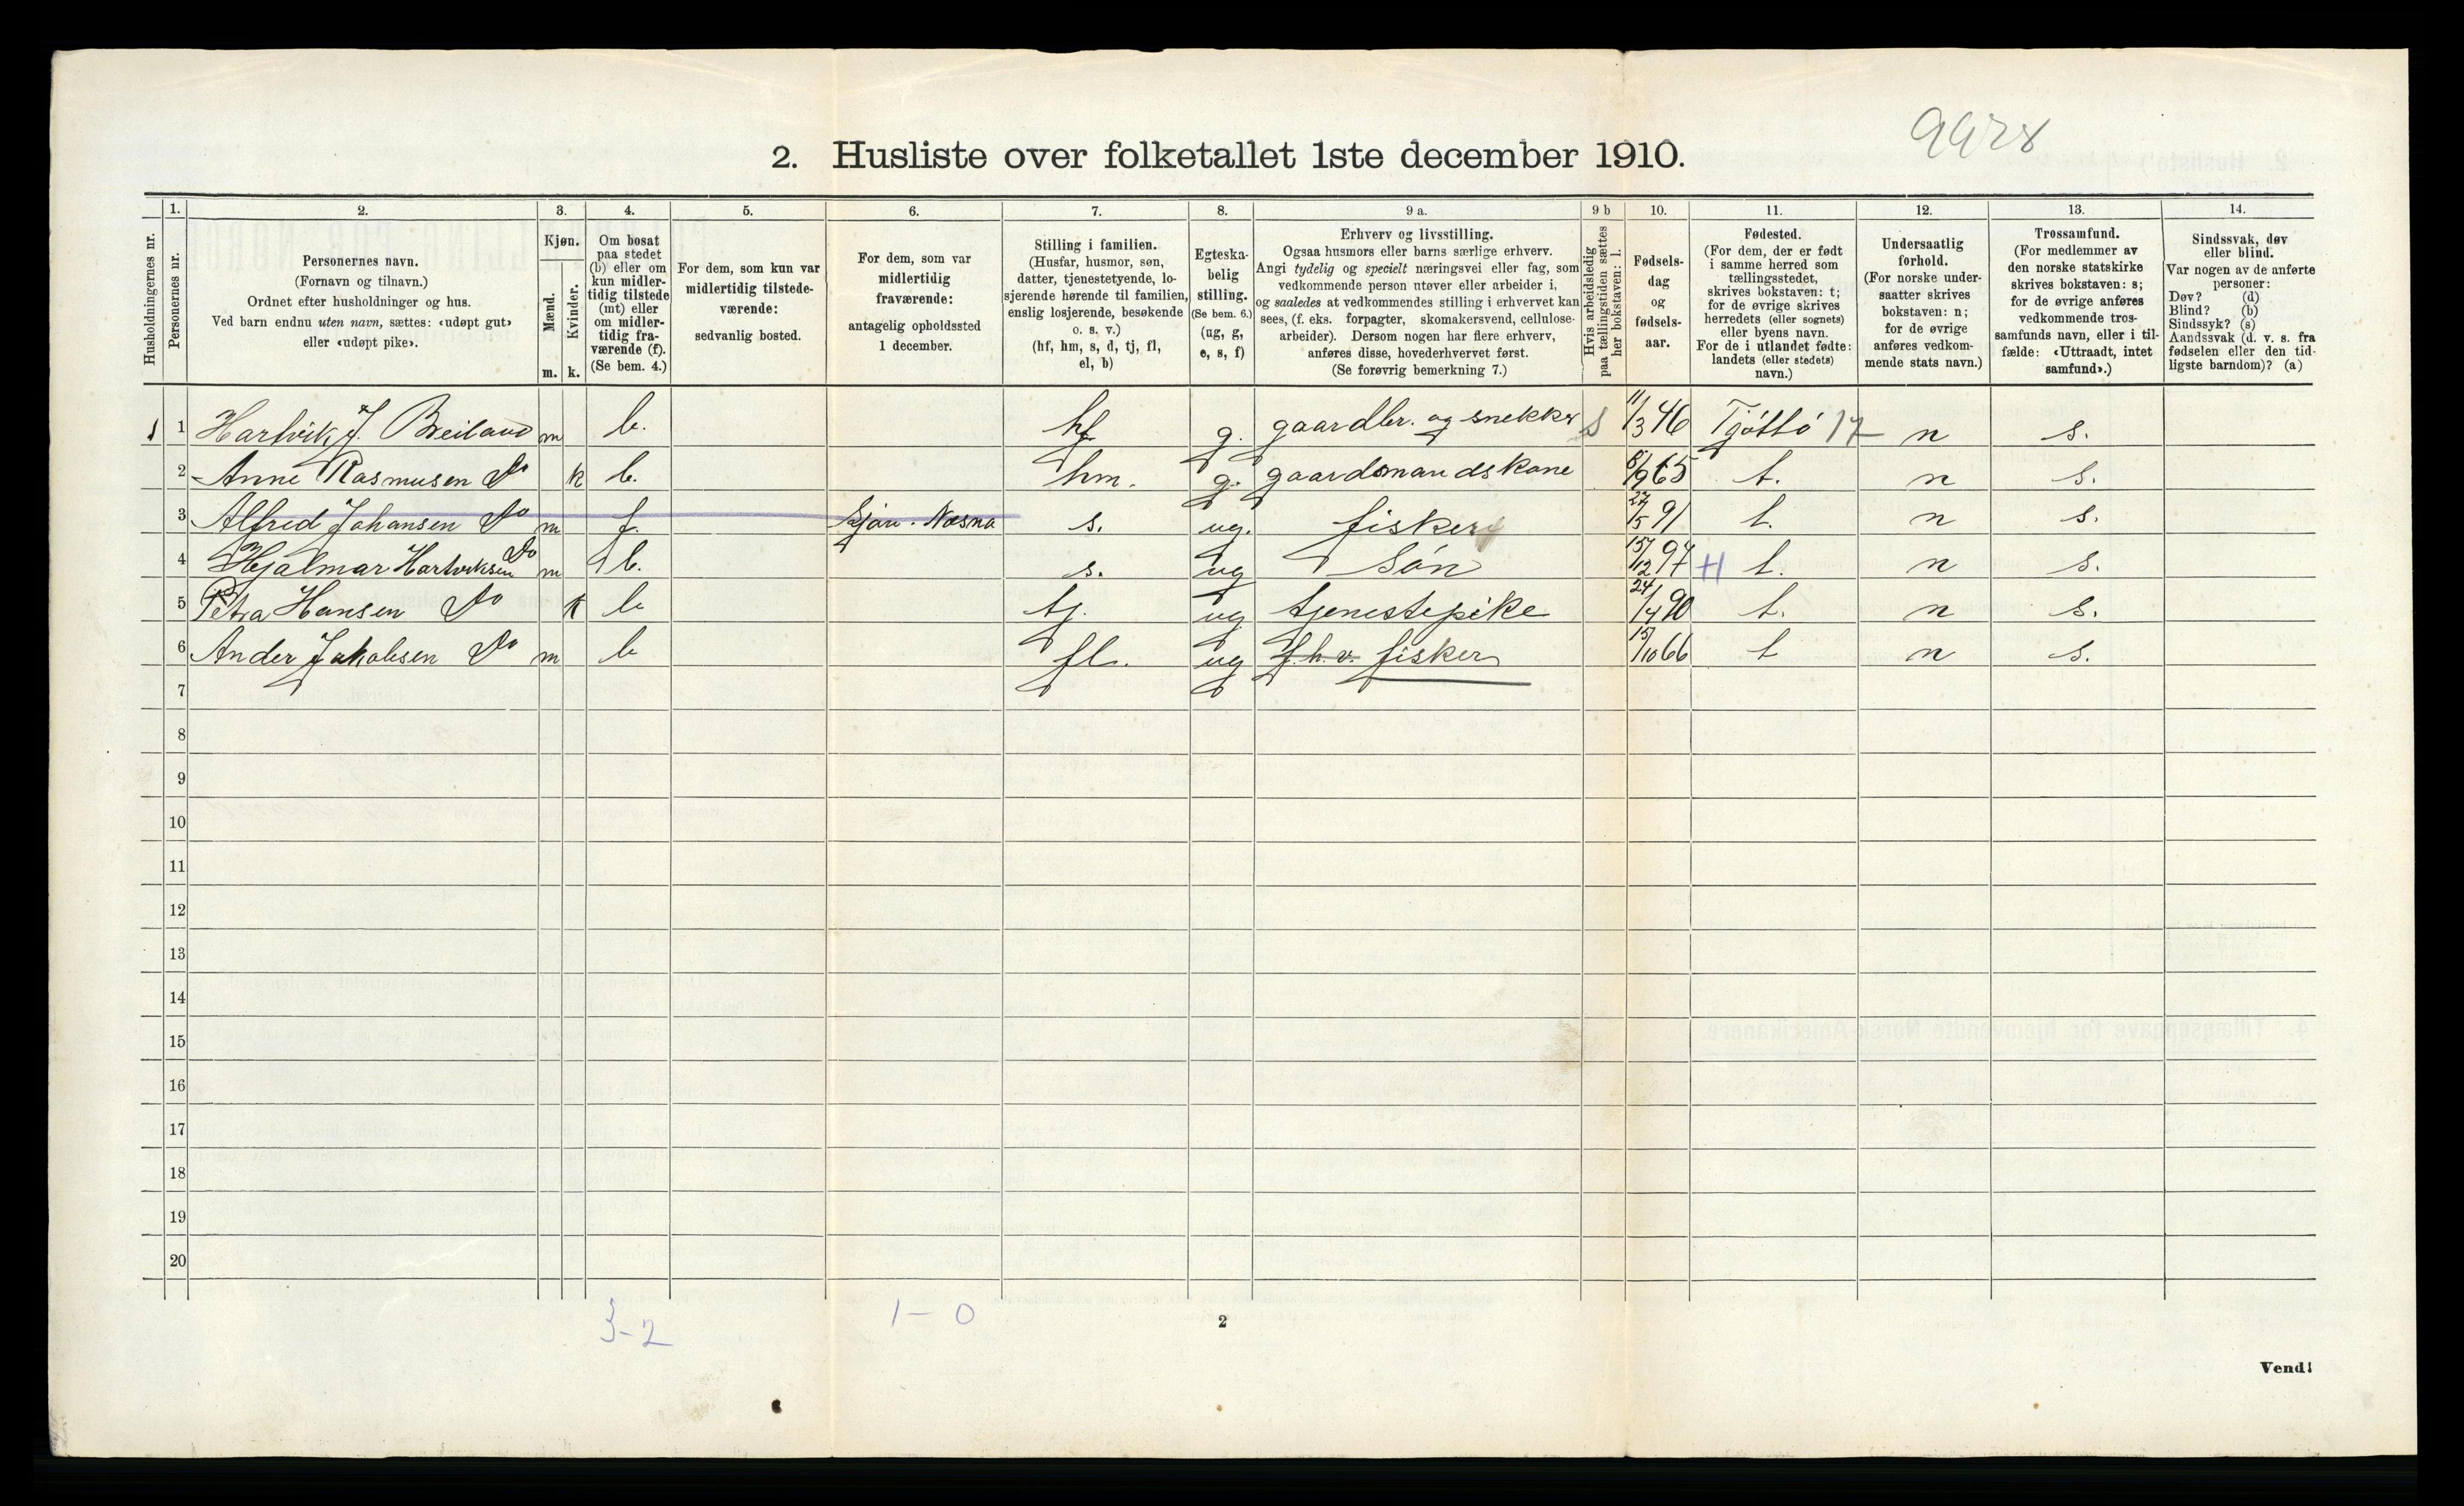 9928
2. Husliste over folketallet 1ste december 1910.
Husholdningernes nr.
1.
Personernes nr.
2.
Personernes navn.
(Fornavn og tilnavn.)
Ordnet efter husholdninger og hus.
Ved barn endnu uten navn, sættes: «udøpt gut»
eller «udøpt pike».
3.
Kjøn.
Mænd.
Kvinder.
m. k.
4.
Om bosat
paa stedet
(b) eller om
kun midler-
tidig tilstede
(mt) eller
om midler-
tidig fra-
værende (f).
(Se bem. 4.)
5.
For dem, som kun var
midlertidig tilstede-
værende:
sedvanlig bosted.
6.
For dem, som var
midlertidig
fraværende:
antagelig opholdssted
1 december.
7.
Stilling i familien.
(Husfar, husmor, søn,
datter, tjenestetyende, lo-
sjerende hørende til familien,
enslig losjerende, besøkende
o. s. v.)
(hf, hm, s, d, tj, fl,
el, b)
8.
Egteska-
belig
stilling.
(Se bem. 6.)
(ug, g,
e, s, f)
9 a.
Erhverv og livsstilling.
Ogsaa husmors eller barns særlige erhverv.
Angi tydelig og specielt næringsvei eller fag, som
vedkommende person utøver eller arbeider i,
og saaledes at vedkommendes stilling i erhvervet kan
sees, (f. eks. forpagter, skomakersvend, cellulose-
arbeider). Dersom nogen har flere erhverv,
anføres disse, hovederhvervet først.
(Se forøvrig bemerkning 7.)
9 b
Hvis arbeidsledig
paa tællingstiden sættes
her bokstaven: l.
10.
Fødsels-
dag
og
fødsels-
aar.
11.
Fødested.
(For dem, der er født
i samme herred som
tællingsstedet,
skrives bokstaven: t;
for de øvrige skrives
herredets (eller sognets)
eller byens navn.
For de i utlandet fødte:
landets (eller stedets)
navn.)
12.
Undersaatlig
forhold.
(For norske under-
saatter skrives
bokstaven: n;
for de øvrige
anføres vedkom-
mende stats navn.)
13.
Trossamfund.
(For medlemmer av
den norske statskirke
skrives bokstaven: s;
for de øvrige anføres
vedkommende tros-
samfunds navn, eller i til-
fælde: «Uttraadt, intet
samfund».)
14.
Sindssvak, døv
eller blind.
Var nogen av de anførte
personer:
Døv? (d)
Blind? (b)
Sindssyk? (s)
Aandssvak (d. v. s. fra
fødselen eller den tid-
ligste barndom)? (a)
1 1 Hartvik J. Breiland m b. hf g. gaardbr. og snekker S 11/3 46 Tjøttø 17 n s.
2 Anne Rasmusen Do k b. hm. g. gaardsmandskone 8/9 65 t. n s.
3 Alfred Johansen Do m f. Sjøn. Næsna s. ug. fisker 27/5 91 t. n s.
4 Hjalmar Hartviksen Do m b. s. ug Søn 15/12 97 H t. n s.
5 Petra Hansen Do k b tj. ug tjenestepike 24/4 90 t. n s.
6 Ander Jakobsen Do m b fl. ug f.h.v. fisker 15/10 66 t n s.
7
8
9
10
11
12
13
14
15
16
17
18
19
20
3-2
1-0
2
Vend!